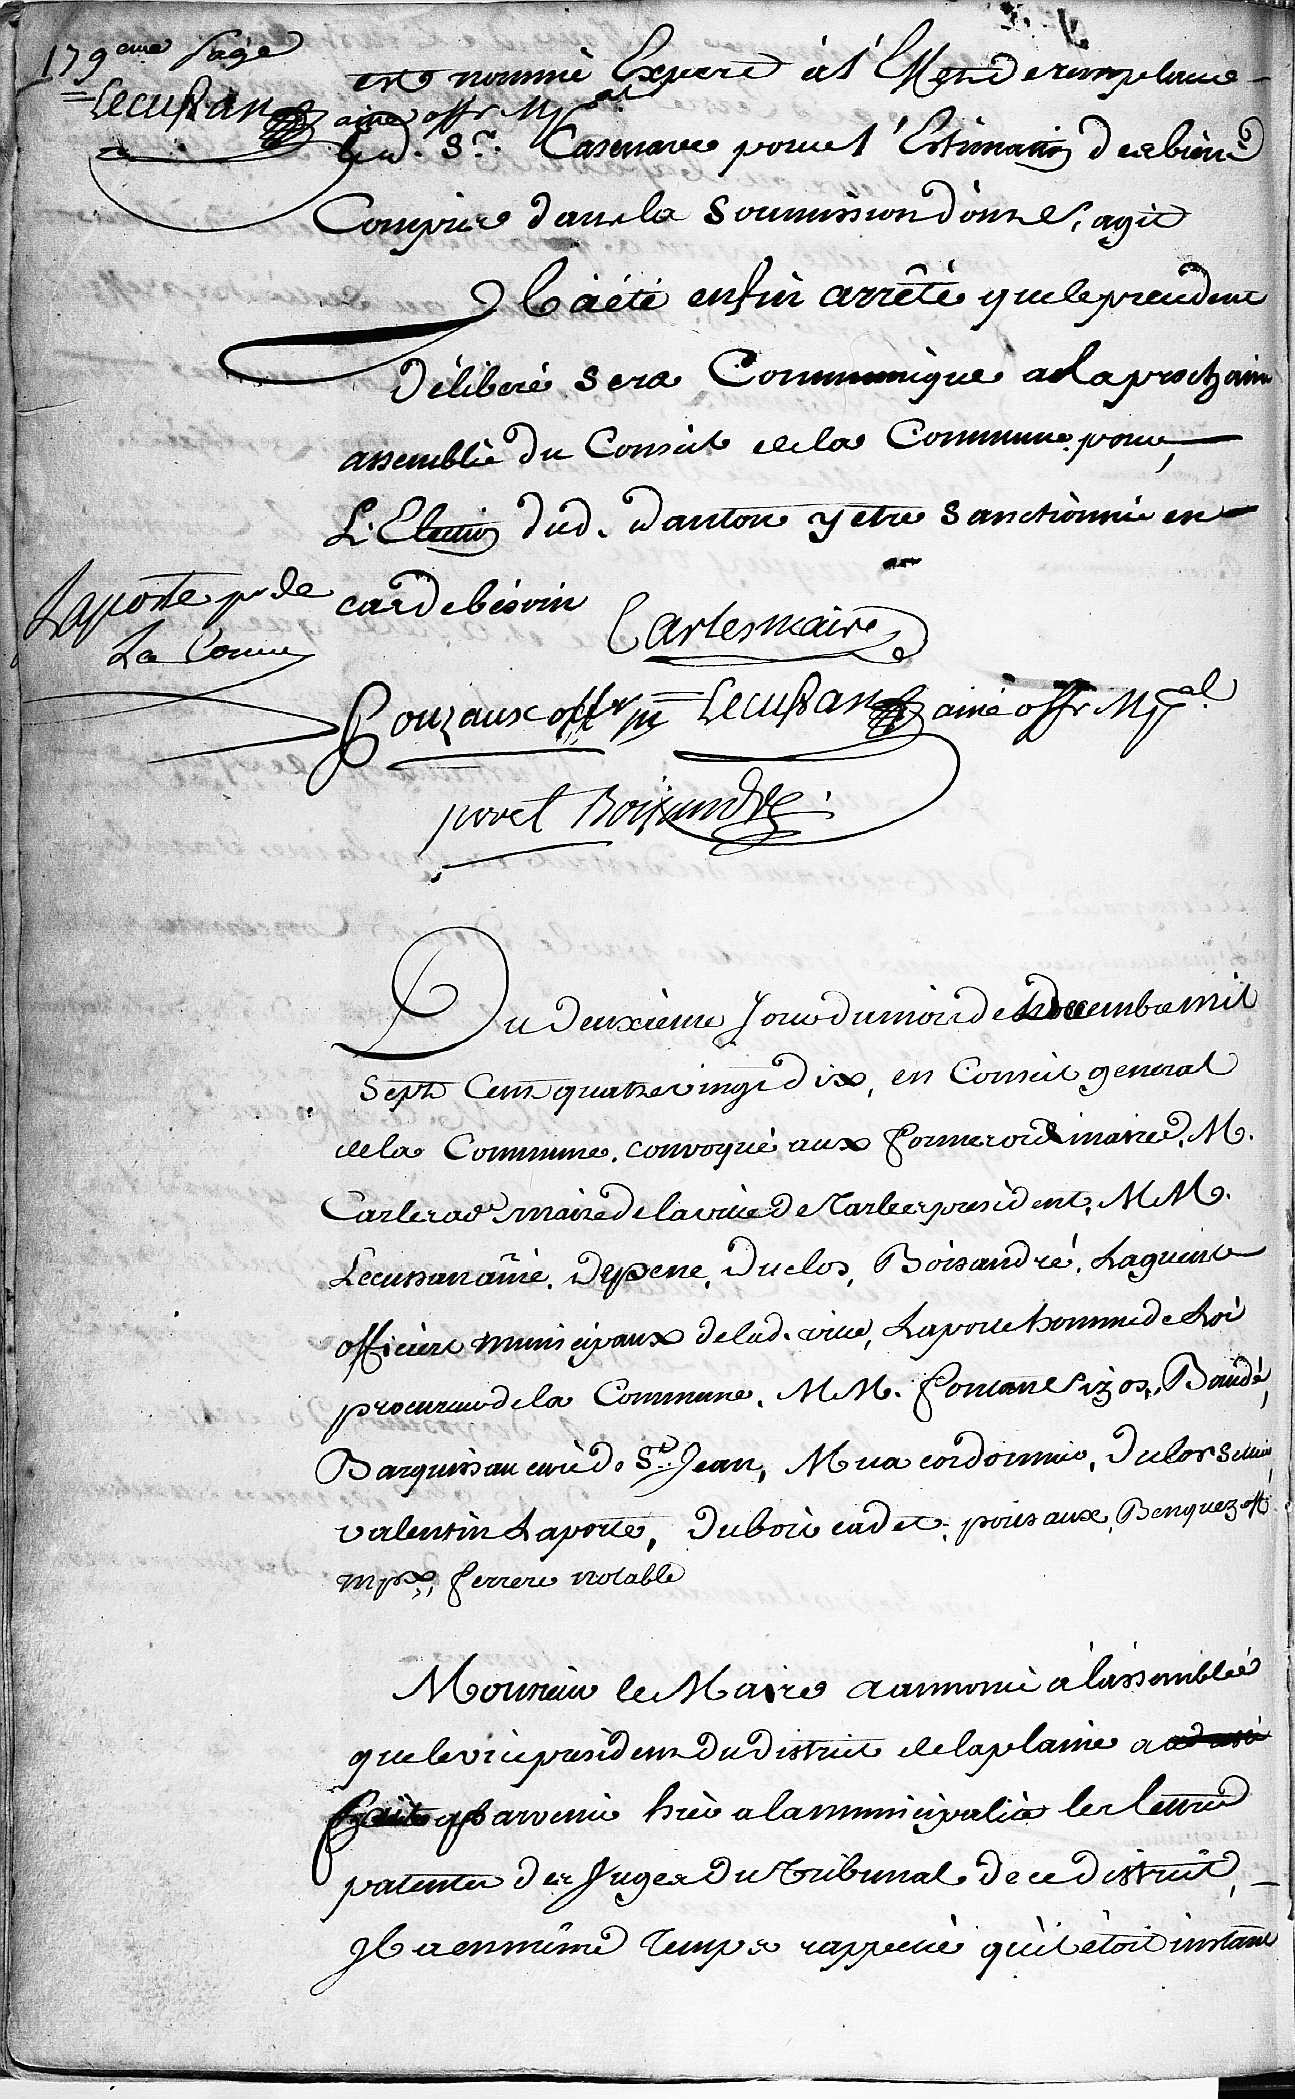 179eme page
Lecussan ainé offr Mpal
est nommé Expert à l'Effet de remplacer
led. Sr. Casenave pour l'Estimation des biens
Compris dans la Soumission dont il s'agit
Il a été enfin arrêté que le present
délibéré sera Communiqué a la prochaine
assemblée du Conseil de la Commune pour,
L'Election dud. Danton y etre Sanctionnée en
cas de bésoin
Laporte pr de
La Comne
Carles maire
Gouzaux offr m Lecussan ainé offr Mpal
Boisandré
Du deuxième Jour du mois de decembre mil
Sept Cens quatre vingt dix, en Conseil general
de la Commune, convoqué aux formes ordinaires, M.
Carles maire de la ville de Tarbes president, M M.
Lecussan ainé, Depene, Duclos, Boisandré, Laguens
officiers municipaux de lad. ville, Laporte homme de Loi
procureur de la Commune, M M. fontan, Baudé,
Barquissau curé de St. Jean, Mua cordonnier, Duclos
valentin Laporte, Dubois cadet, Benquez off.
mpx, ferrere notable
Monsieur le Maire a annoncé à l'assemblée
que le vice president du district de la plaine a
fait parvenir hier a la municipalité les lettres
patentes des Juges du Tribunal de ce district,
Il a en même Temps rappellé qu'il étoit instant